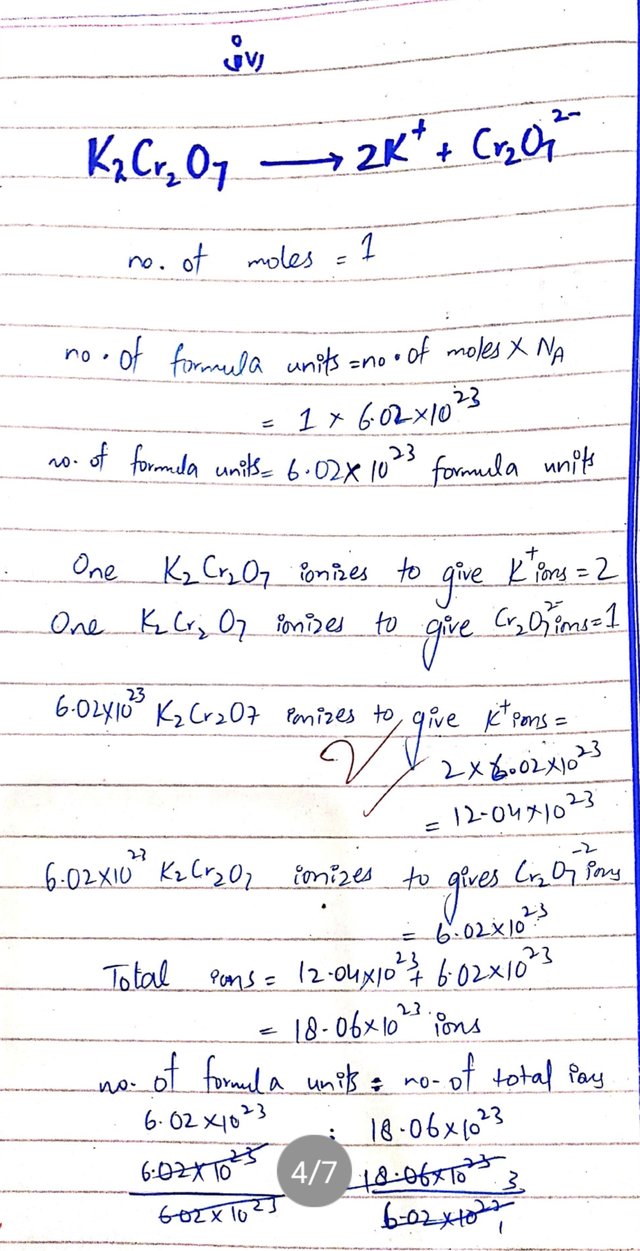 iv,
K₂Cr₂O₇ ⟶ 2K⁺ + Cr₂O₇²⁻
no. of moles = 1
no. of formula units = no. of moles × Nᴀ
= 1 × 6.02×10²³
no. of formula units = 6.02×10²³ formula units
One K₂Cr₂O₇ ionizes to give K⁺ ions = 2
One K₂Cr₂O₇ ionizes to give Cr₂O₇²⁻ ions = 1
6.02×10²³ K₂Cr₂O₇ ionizes to give K⁺ ions =
2 × 6.02×10²³
= 12.04×10²³
6.02×10²³ K₂Cr₂O₇ ionizes to gives Cr₂O₇⁻² ions
= 6.02×10²³
Total ions = 12.04×10²³ + 6.02×10²³
= 18.06×10²³ ions
no. of formula units : no. of total ions
6.02×10²³ : 18.06×10²³
6.02×10²³ 4/7 18.06×10²³ 3
6.02×10²³ 6.02×10²³ 1